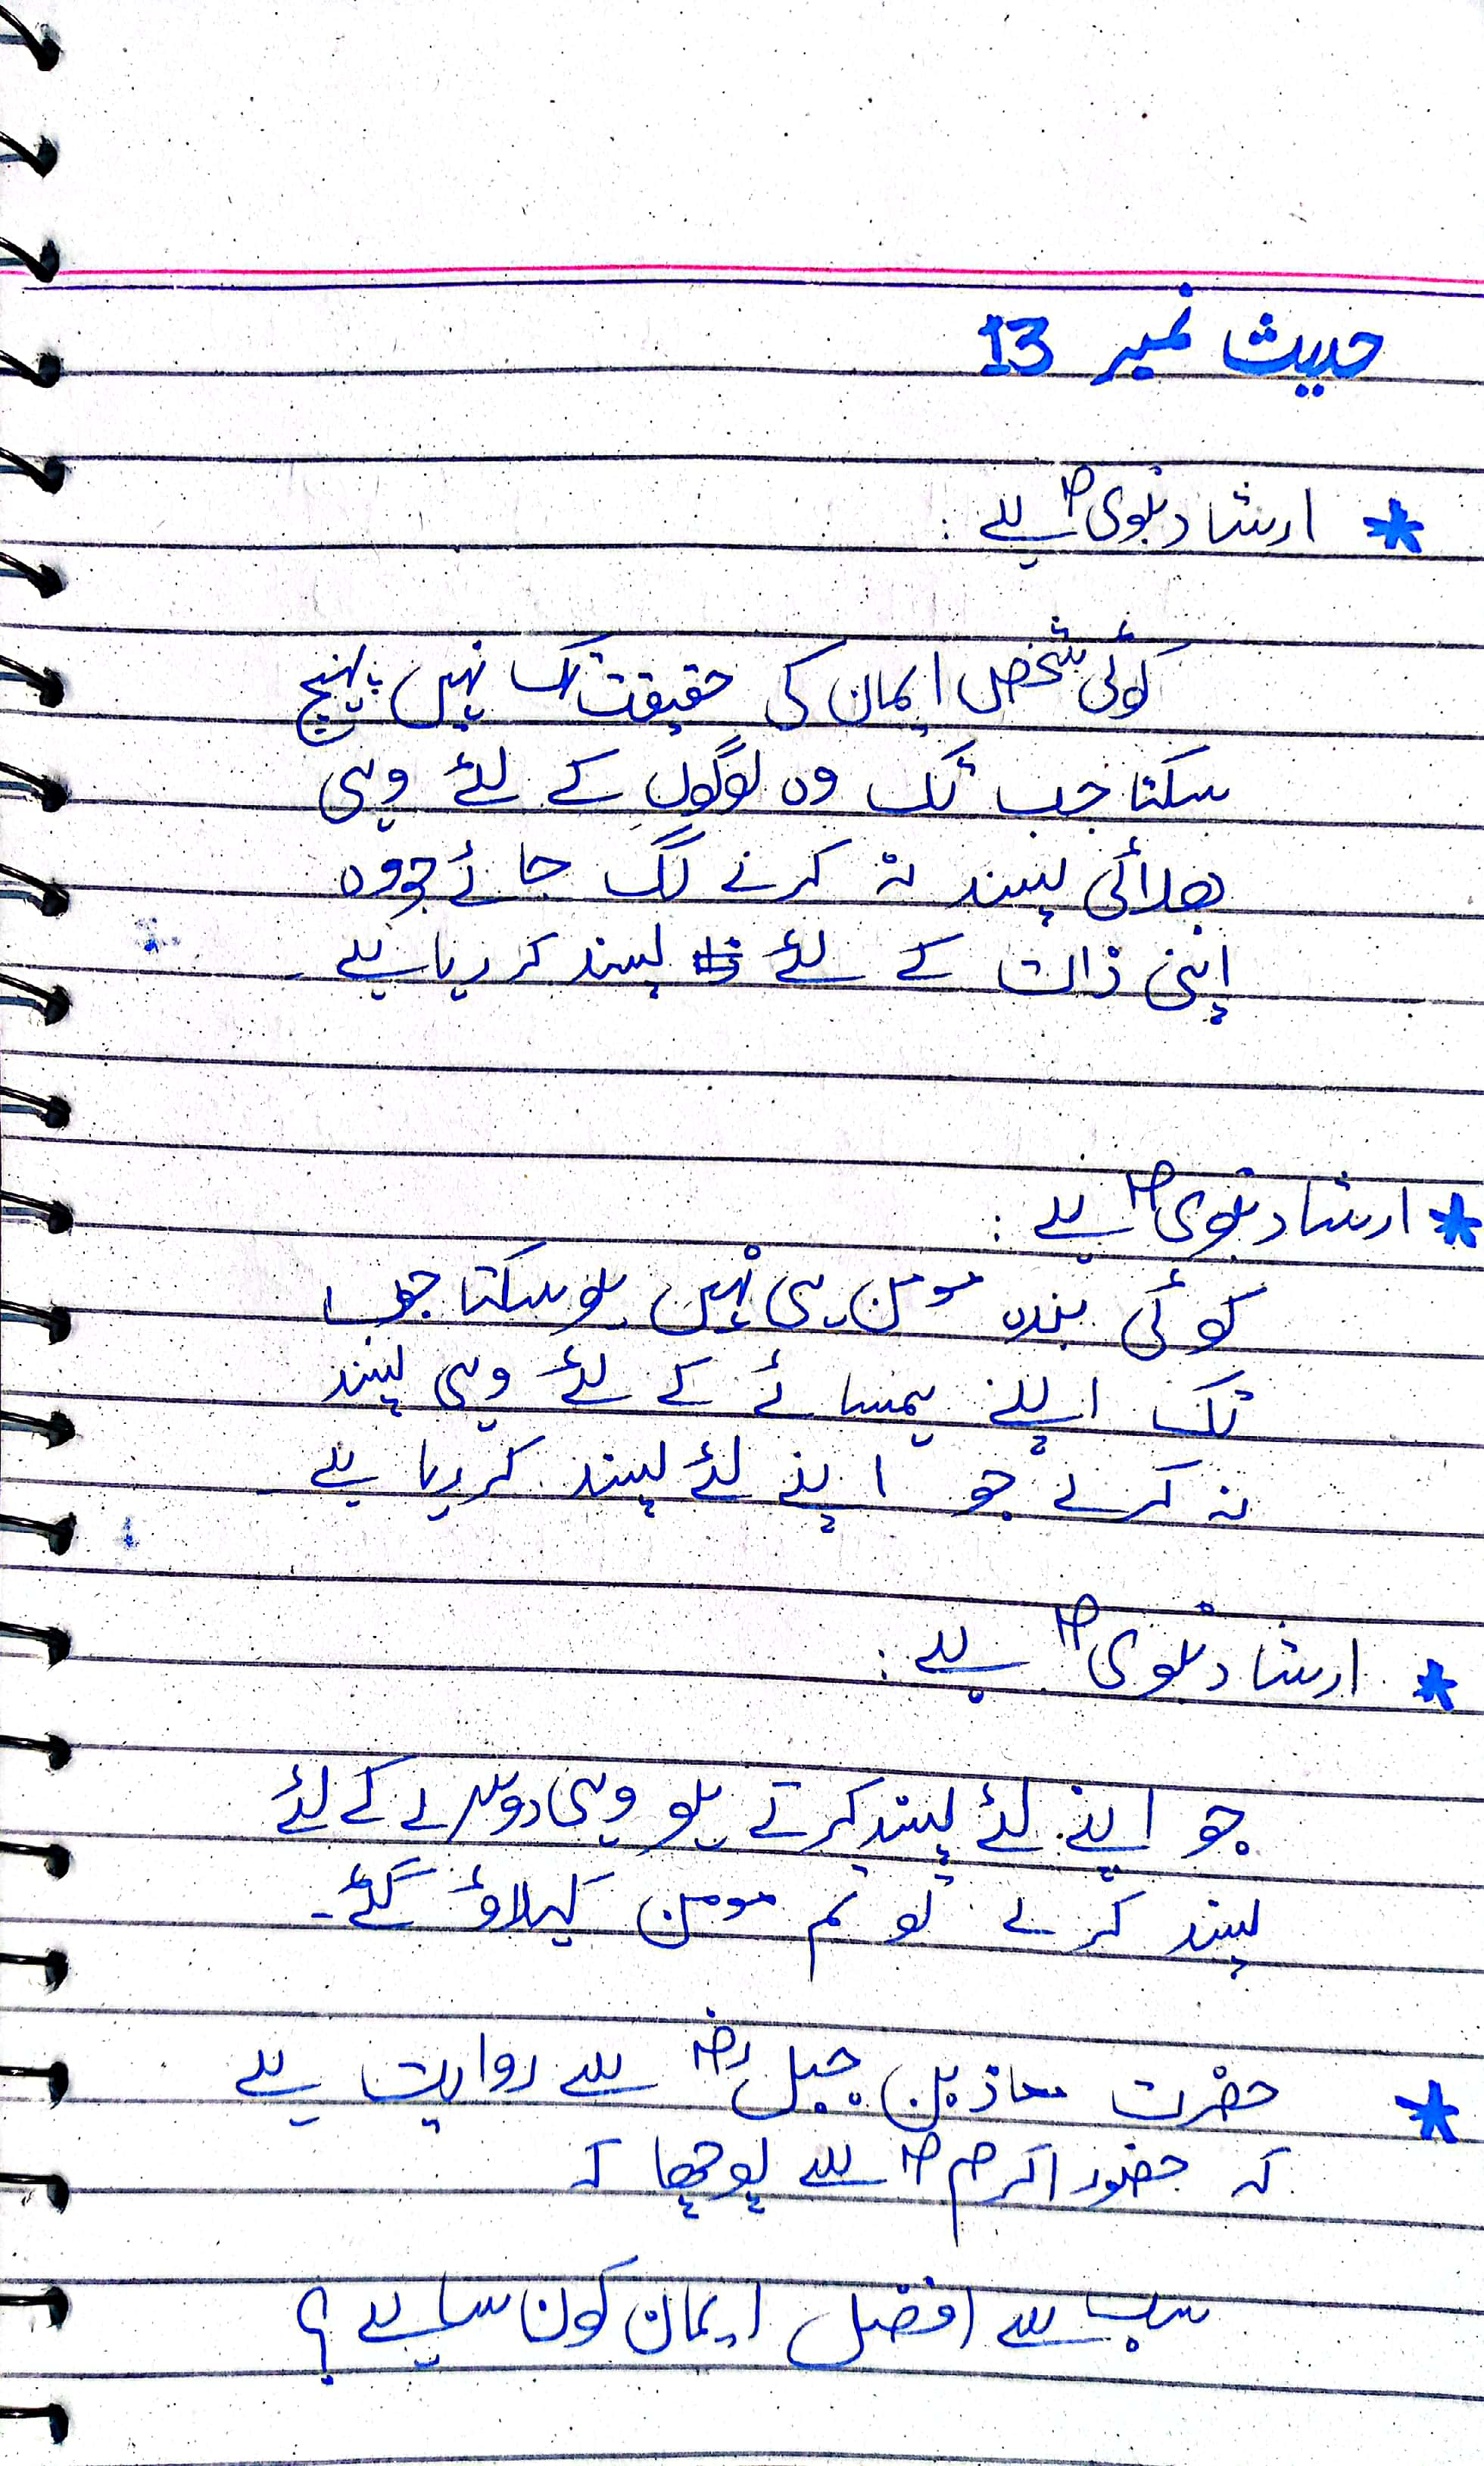 حدیث نمبر 13
* ارشاد نبوی ؐ ہے :
کوئی شخص ایمان کی حقیقت تک نہیں پہنچ
سکتا جب تک وہ لوگوں کے لئے وہی
بھلائی پسند نہ کرنے لگ جائے جو وہ
اپنی ذات کے لئے پسند کر رہا ہے ۔
* ارشاد نبوی ؐ ہے :
کوئی بندہ مومن ہی نہیں ہو سکتا جب
تک اپنے ہمسائے کے لئے وہی پسند
نہ کرے جو اپنے لئے پسند کر رہا ہے ۔
* ارشاد نبوی ؐ ہے :
جو اپنے لئے پسند کرتے ہو وہی دوسرے کے لئے
پسند کرے تو تم مومن کہلاؤ گئے ۔
* حضرت معاذ بن جبل ؓ سے روایت ہے
کہ حضور اکرم ؐ سے پوچھا کہ
سب سے افضل ایمان کون سا ہے ؟